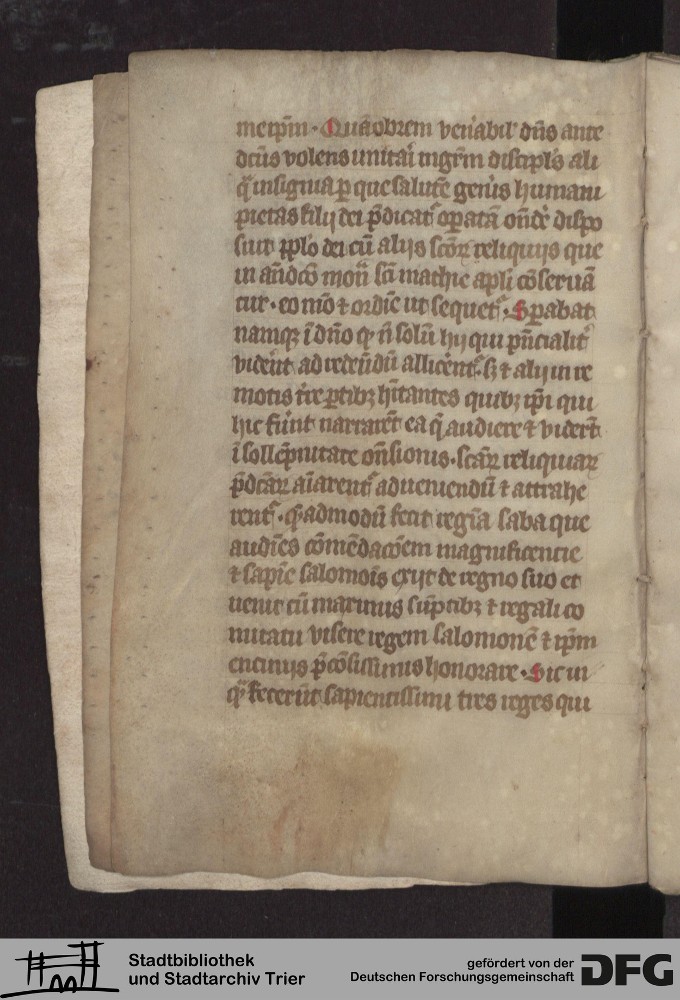 me ip̄m · Quāobrem ven̄abil̓ dn̄s ante
dc̄us volens imitaī mgr̄m discipl̓s ali
q̄ insignia ꝑ que salutē gen̄is humani
pietas filij dei p̄dicat̓ oꝑatā on̄dē dispo
suit ppl̓o dei cū alijs sc̄oꝝ reliquijs que
in an̄dc̄o mon̄ sc̄i mathie apl̓i cōseruā
tur · eo mō ⁊ ordīe ut sequet̓ · Sꝑabat
namqꝫ ī dn̄o qꝫ nō solū hij qui p̄ncialit̓
viden̄t ad veden̄dū allicent̓ · sꝫ ⁊ alij in re
motis tr̄e ꝑtibꝫ hītantes quibꝫ ip̄i qui
hic fūīnt narraret̄ ea q̄ audiere ⁊ viderīt
ī sollēpnitate on̄sionis · scāꝝ reliquiaꝝ
p̄dcāꝝ aīarent̓ ad ueniendū ⁊ attrahe
rent̓ · q̄admodū fecit regīa saba que
audiēs cōmēdacōem magnificentie
⁊ sapīe salomōis exijt de regno suo et
uenit cū maximis sūptibꝫ ⁊ regali co
mitatu visere regem salomonē ⁊ ip̄m
encenijs p̄cōsissimis honorare · Sic ni
q̄ fecerūt sapientissimi tres reges qui
Stadtbibliothek
und Stadtarchiv Trier
gefördert von der
Deutschen Forschungsgemeinschaft
DFG